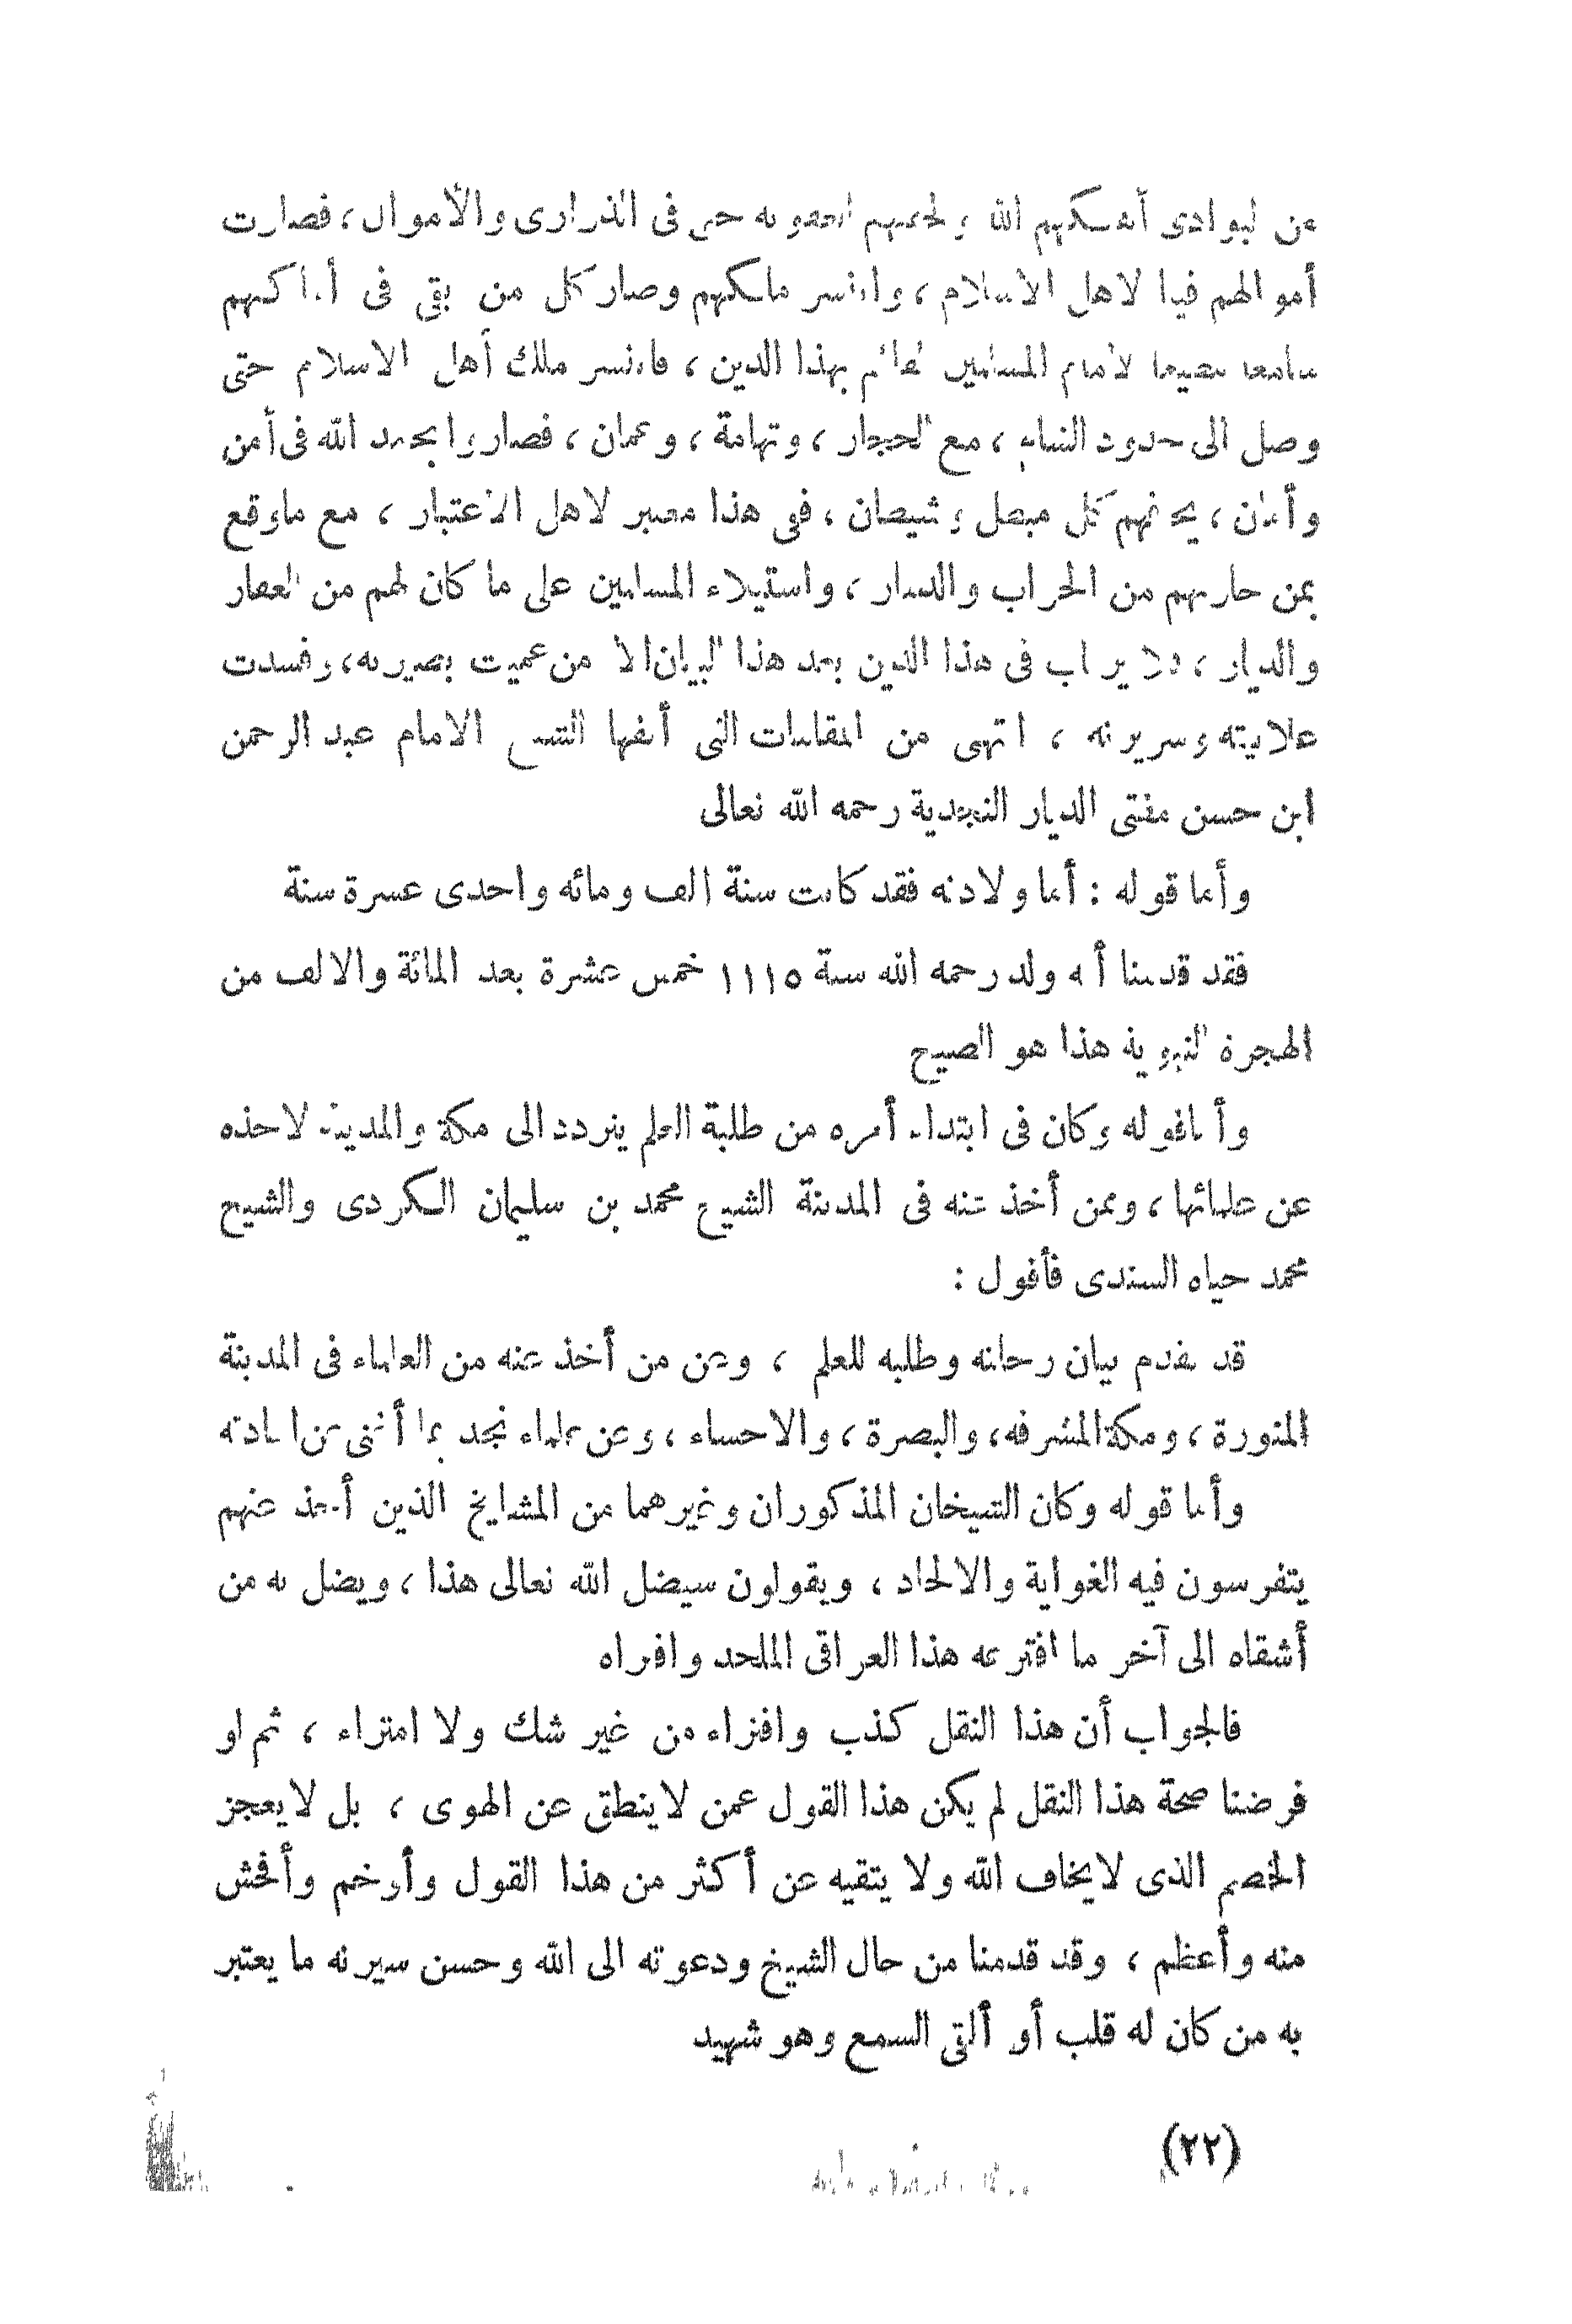 من البوادى أهلكهم الله ولحقتهم العقوبة حتى فى الذرارى والأموال، فصارت
أموالهم فيا لاهل الاسلام ، وانتشر ملكهم وصار كل من بقى فى أماكنهم
سامعا مطيعا لامام المسلمين القائم بهذا الدين ، فانتشر ملك أهل الاسلام حتى
وصل الى حدود الشام ، مع الحجاز ، وتهامة ، وعمان ، فصاروا بحمد الله فى أمن
وأمان ، يخافهم كل مبطل وشيطان ، ففى هذا معتبر لاهل الاعتبار ، مع ماوقع
بمن حاربهم من الخراب والدمار ، واستيلاء المسلمين على ما كان لهم من العقار
والديار ، ولا يرتاب فى هذا الدين بعد هذا البيان الا من عميت بصيرته، وفسدت
علانيته وسريرته ، انتهى من المقامات التى ألفها الشيخ الامام عبد الرحمن
ابن حسن مفتى الديار النجدية رحمه الله تعالى
وأما قوله : أما ولادته فقد كانت سنة الف ومائه واحدى عشرة سنة
فقد قدمنا أنه ولد رحمه الله سنة ١١١٥ خمس عشرة بعد المائة والالف من
الهجرة النبوية هذا هو الصحيح
وأما قوله وكان فى ابتداء أمره من طلبة العلم يتردد الى مكة والمدينة لاخذه
عن علمائها ، وممن أخذ عنه فى المدينة الشيخ محمد بن سليمان الكردى والشيخ
محمد حياه السندى فأقول :
قد تقدم بيان رحلته وطلبه للعلم ، وعن من أخذ عنه من العلماء فى المدينة
المنورة ، ومكة المشرفه، والبصرة ، والاحساء ، وعن علماء نجد بما أغنى عن اعادته
وأما قوله وكان الشيخان المذكوران وغيرهما من المشايخ الذين أخذ عنهم
يتفرسون فيه الغواية والالحاد ، ويقولون سيضل الله تعالى هذا ، ويضل به من
أشقاه الى آخر ما افترعه هذا العراقى الملحد وافتراه
فالجواب أن هذا النقل كذب وافتراء من غير شك ولا امتراء ، ثم لو
فرضنا صحة هذا النقل لم يكن هذا القول عمن لاينطق عن الهوى ، بل لايعجز
الخصم الذى لايخاف الله ولا يتقيه عن أكثر من هذا القول وأوخم وأفحش
منه وأعظم ، وقد قدمنا من حال الشيخ ودعوته الى الله وحسن سيرته ما يعتبر
به من كان له قلب أو ألقى السمع وهو شهيد
(٢٢)